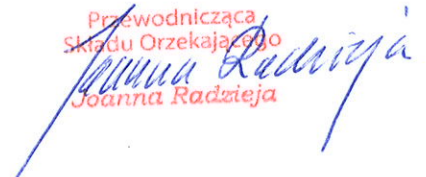 Przewodnicząca
Składu Orzekającego
Joanna Radzieja
Joanna Radzieja